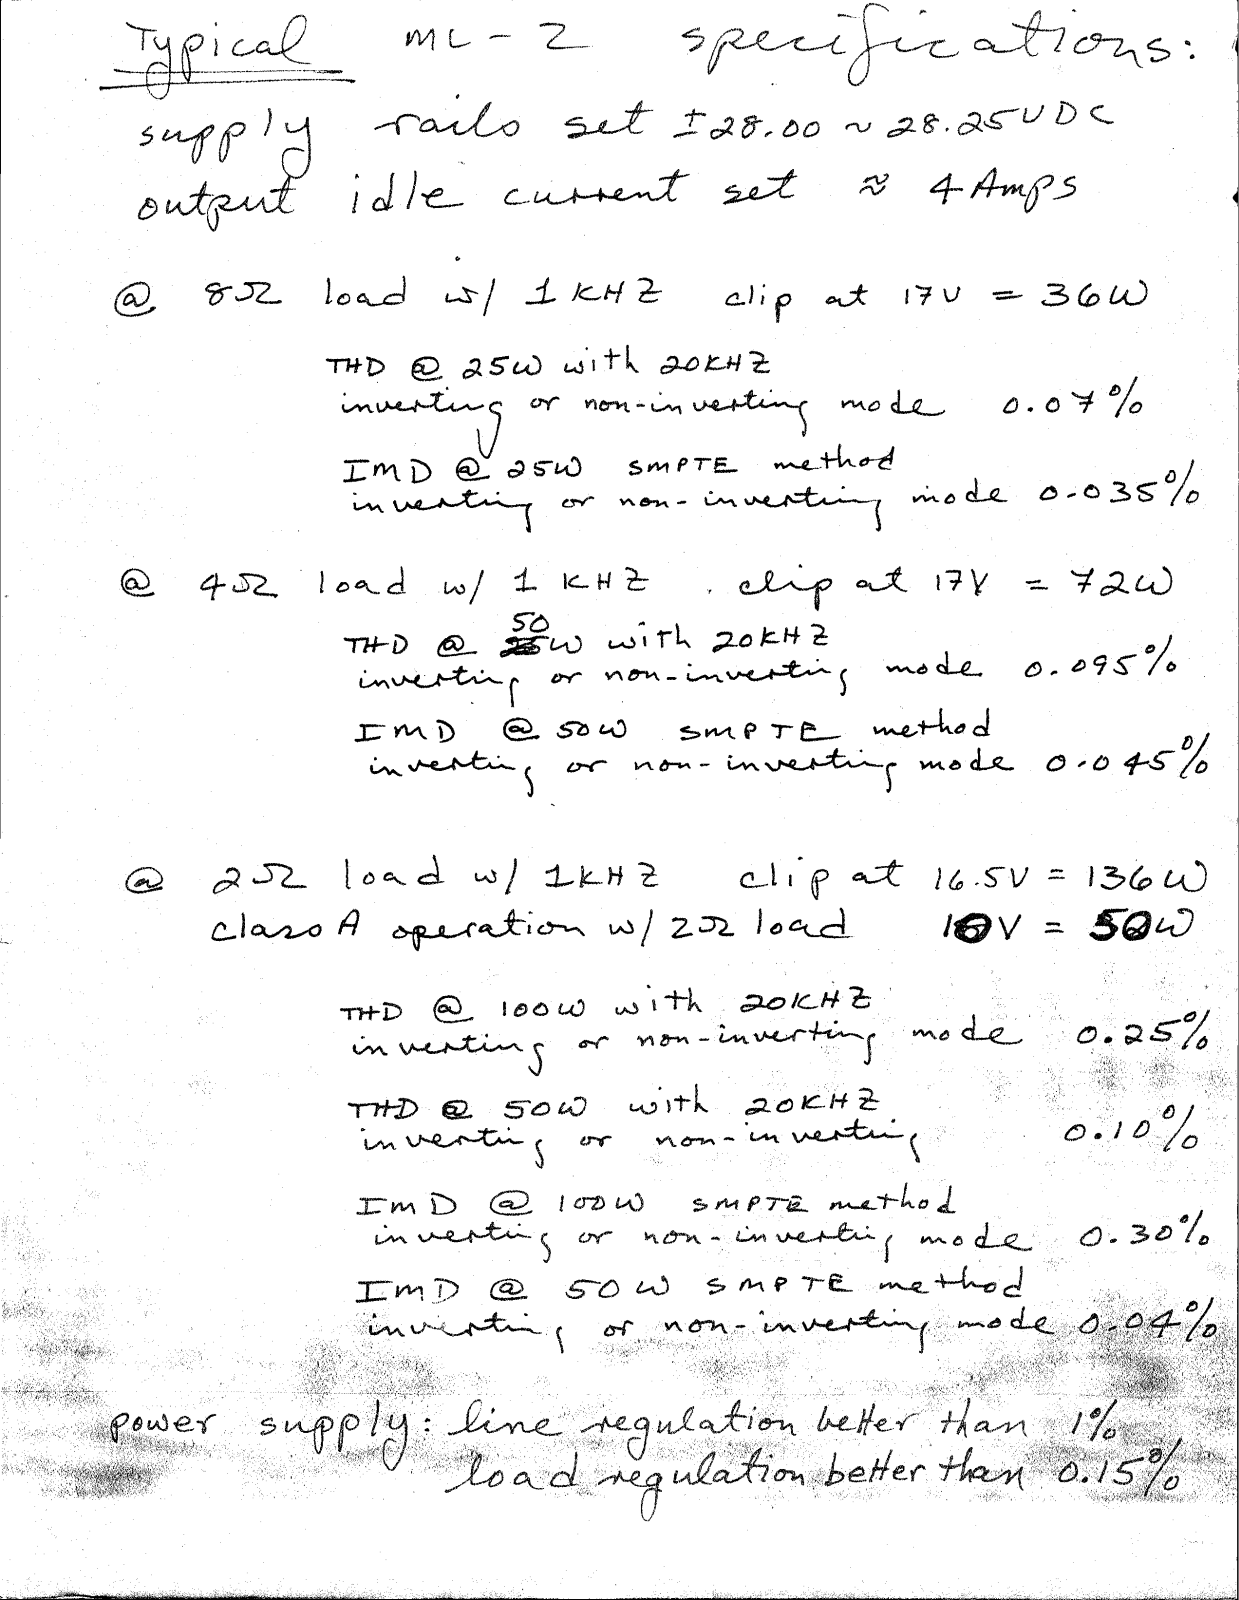 Typical ML-2 specifications:
supply rails set ±28.00 ~ 28.25VDC
output idle current set ≈ 4 Amps
@ 8Ω load w/ 1 KHZ clip at 17V = 36W
THD @ 25W with 20KHZ
inverting or non-inverting mode 0.07%
IMD @ 25W SMPTE method
inverting or non-inverting mode 0.035%
@ 4Ω load w/ 1 KHZ clip at 17V = 72W
50
THD @ W with 20KHZ
inverting or non-inverting mode 0.095%
IMD @ 50W SMPTE method
inverting or non-inverting mode 0.045%
@ 2Ω load w/ 1KHZ clip at 16.5V = 136W
class A operation w/ 2Ω load 10V = 50W
THD @ 100W with 20KHZ
inverting or non-inverting mode 0.25%
THD @ 50W with 20KHZ
inverting or non-inverting 0.10%
IMD @ 100W SMPTE method
inverting or non-inverting mode 0.30%
IMD @ 50W SMPTE method
inverting or non-inverting mode 0.04%
power supply: line regulation better than 1%
load regulation better than 0.15%